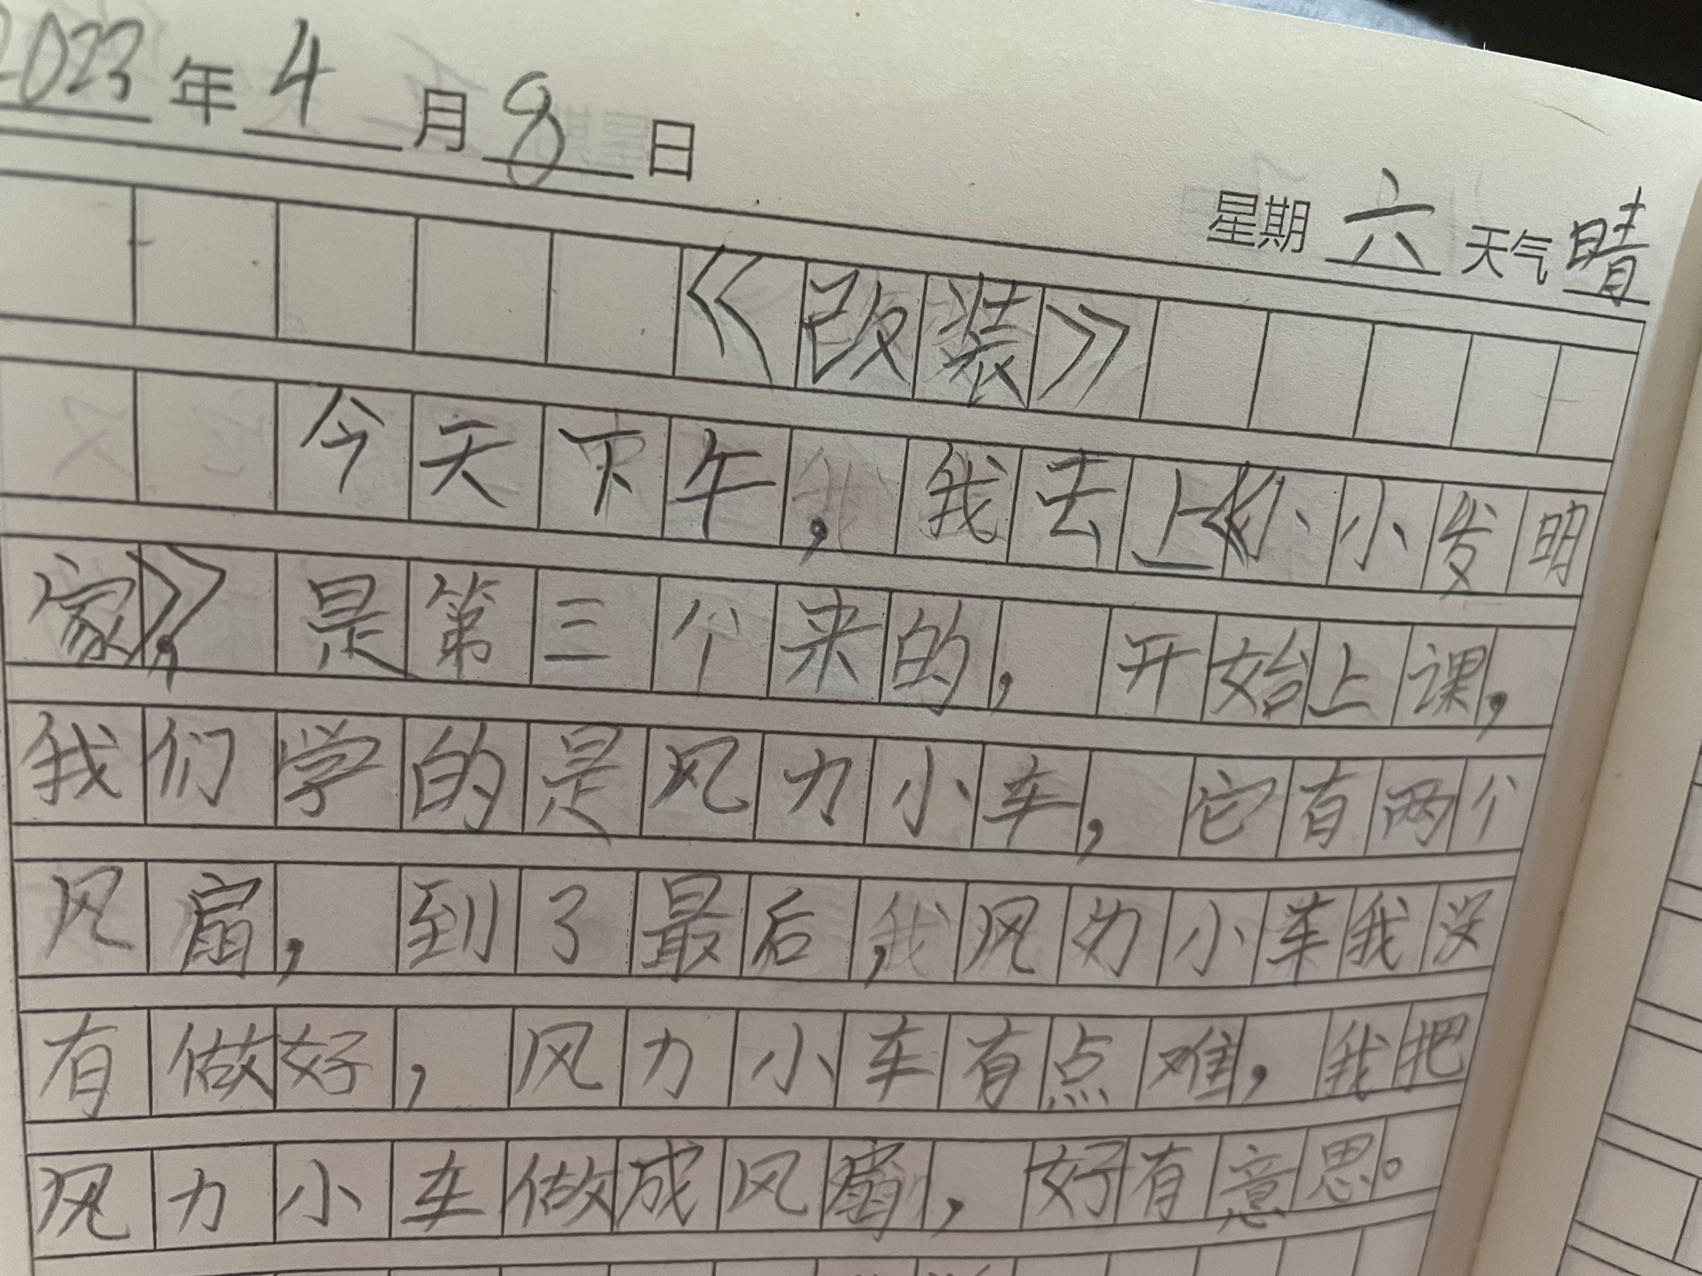 2023年4月8日
星期六天气晴
《改装》
今天下午，我去上《小小发明
家》，是第三个来的，开始上课，
我们学的是风力小车，它有两个
风扇，到了最后，风力小车我没
有做好，风力小车有点难，我把
风力小车做成风扇，好有意思。